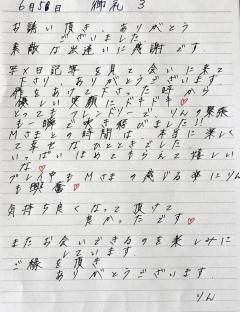 6月5日 御礼 3
お誘い頂き、ありがとう
ございました
素敵な出逢いに感謝です
写メ日記等を見て会いに来て
下さりありがとうございます
声をあけて下さった時から
優しい笑顔にドキドキ♡
とってもフレンドリーで、りんの緊張
も一瞬で吹き飛びました!!
Mさまとの時間は、本当に楽しく
て幸せなひとときでした
いっぱいほめてもらえて嬉しい
な♡
プレイ中もMさまの感じる事にりん
も興奮♡
気持ち良くなって頂けて
良かったです♡
またお会いできるのを楽しみに
しています。
ご縁を頂き
ありがとうございます。
りん